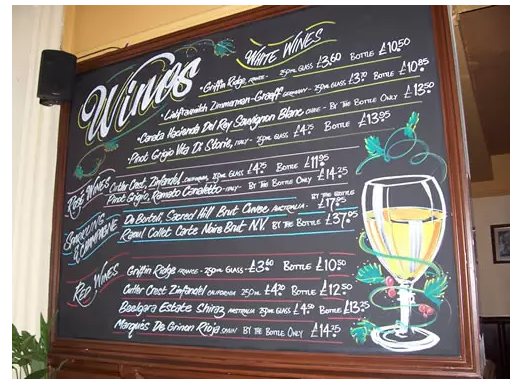 Wines
WHITE WINES
• Griffin Ridge, FRANCE - 250ML GLASS £3.60 BOTTLE £10.50
• Liebfraumilch Zimmerman-Graeff GERMANY - 250ML GLASS £3.70 BOTTLE £10.85
• Canata Hacienda Del Rey Sauvignon Blanc CHILE - BY THE BOTTLE ONLY £13.50
• Pinot Grigio Vita Di Storie, ITALY - 250ML GLASS £4.75 BOTTLE £13.95
ROSÉ WINES
Cutler Crest, Zinfandel, CALIFORNIA, 250ML GLASS £4.75 BOTTLE £11.95
Pinot Grigio, Ramato Canaletto - ITALY - BY THE BOTTLE ONLY £14.25
SPARKLING & CHAMPAGNE
De Bortoli, Sacred Hill Brut Cuvee AUSTRALIA - BY THE BOTTLE £17.95
Raoul Collet Carte Noire Brut N.V. BY THE BOTTLE £37.95
RED WINES
Griffin Ridge FRANCE - 250ML GLASS - £3.60 BOTTLE £10.50
Cutler Crest Zinfandel CALIFORNIA 250ML £4.20 BOTTLE £12.50
Beelgara Estate Shiraz, AUSTRALIA 250ML GLASS £4.50 BOTTLE £13.25
Marqués De Grinon Rioja, SPAIN BY THE BOTTLE ONLY £14.25